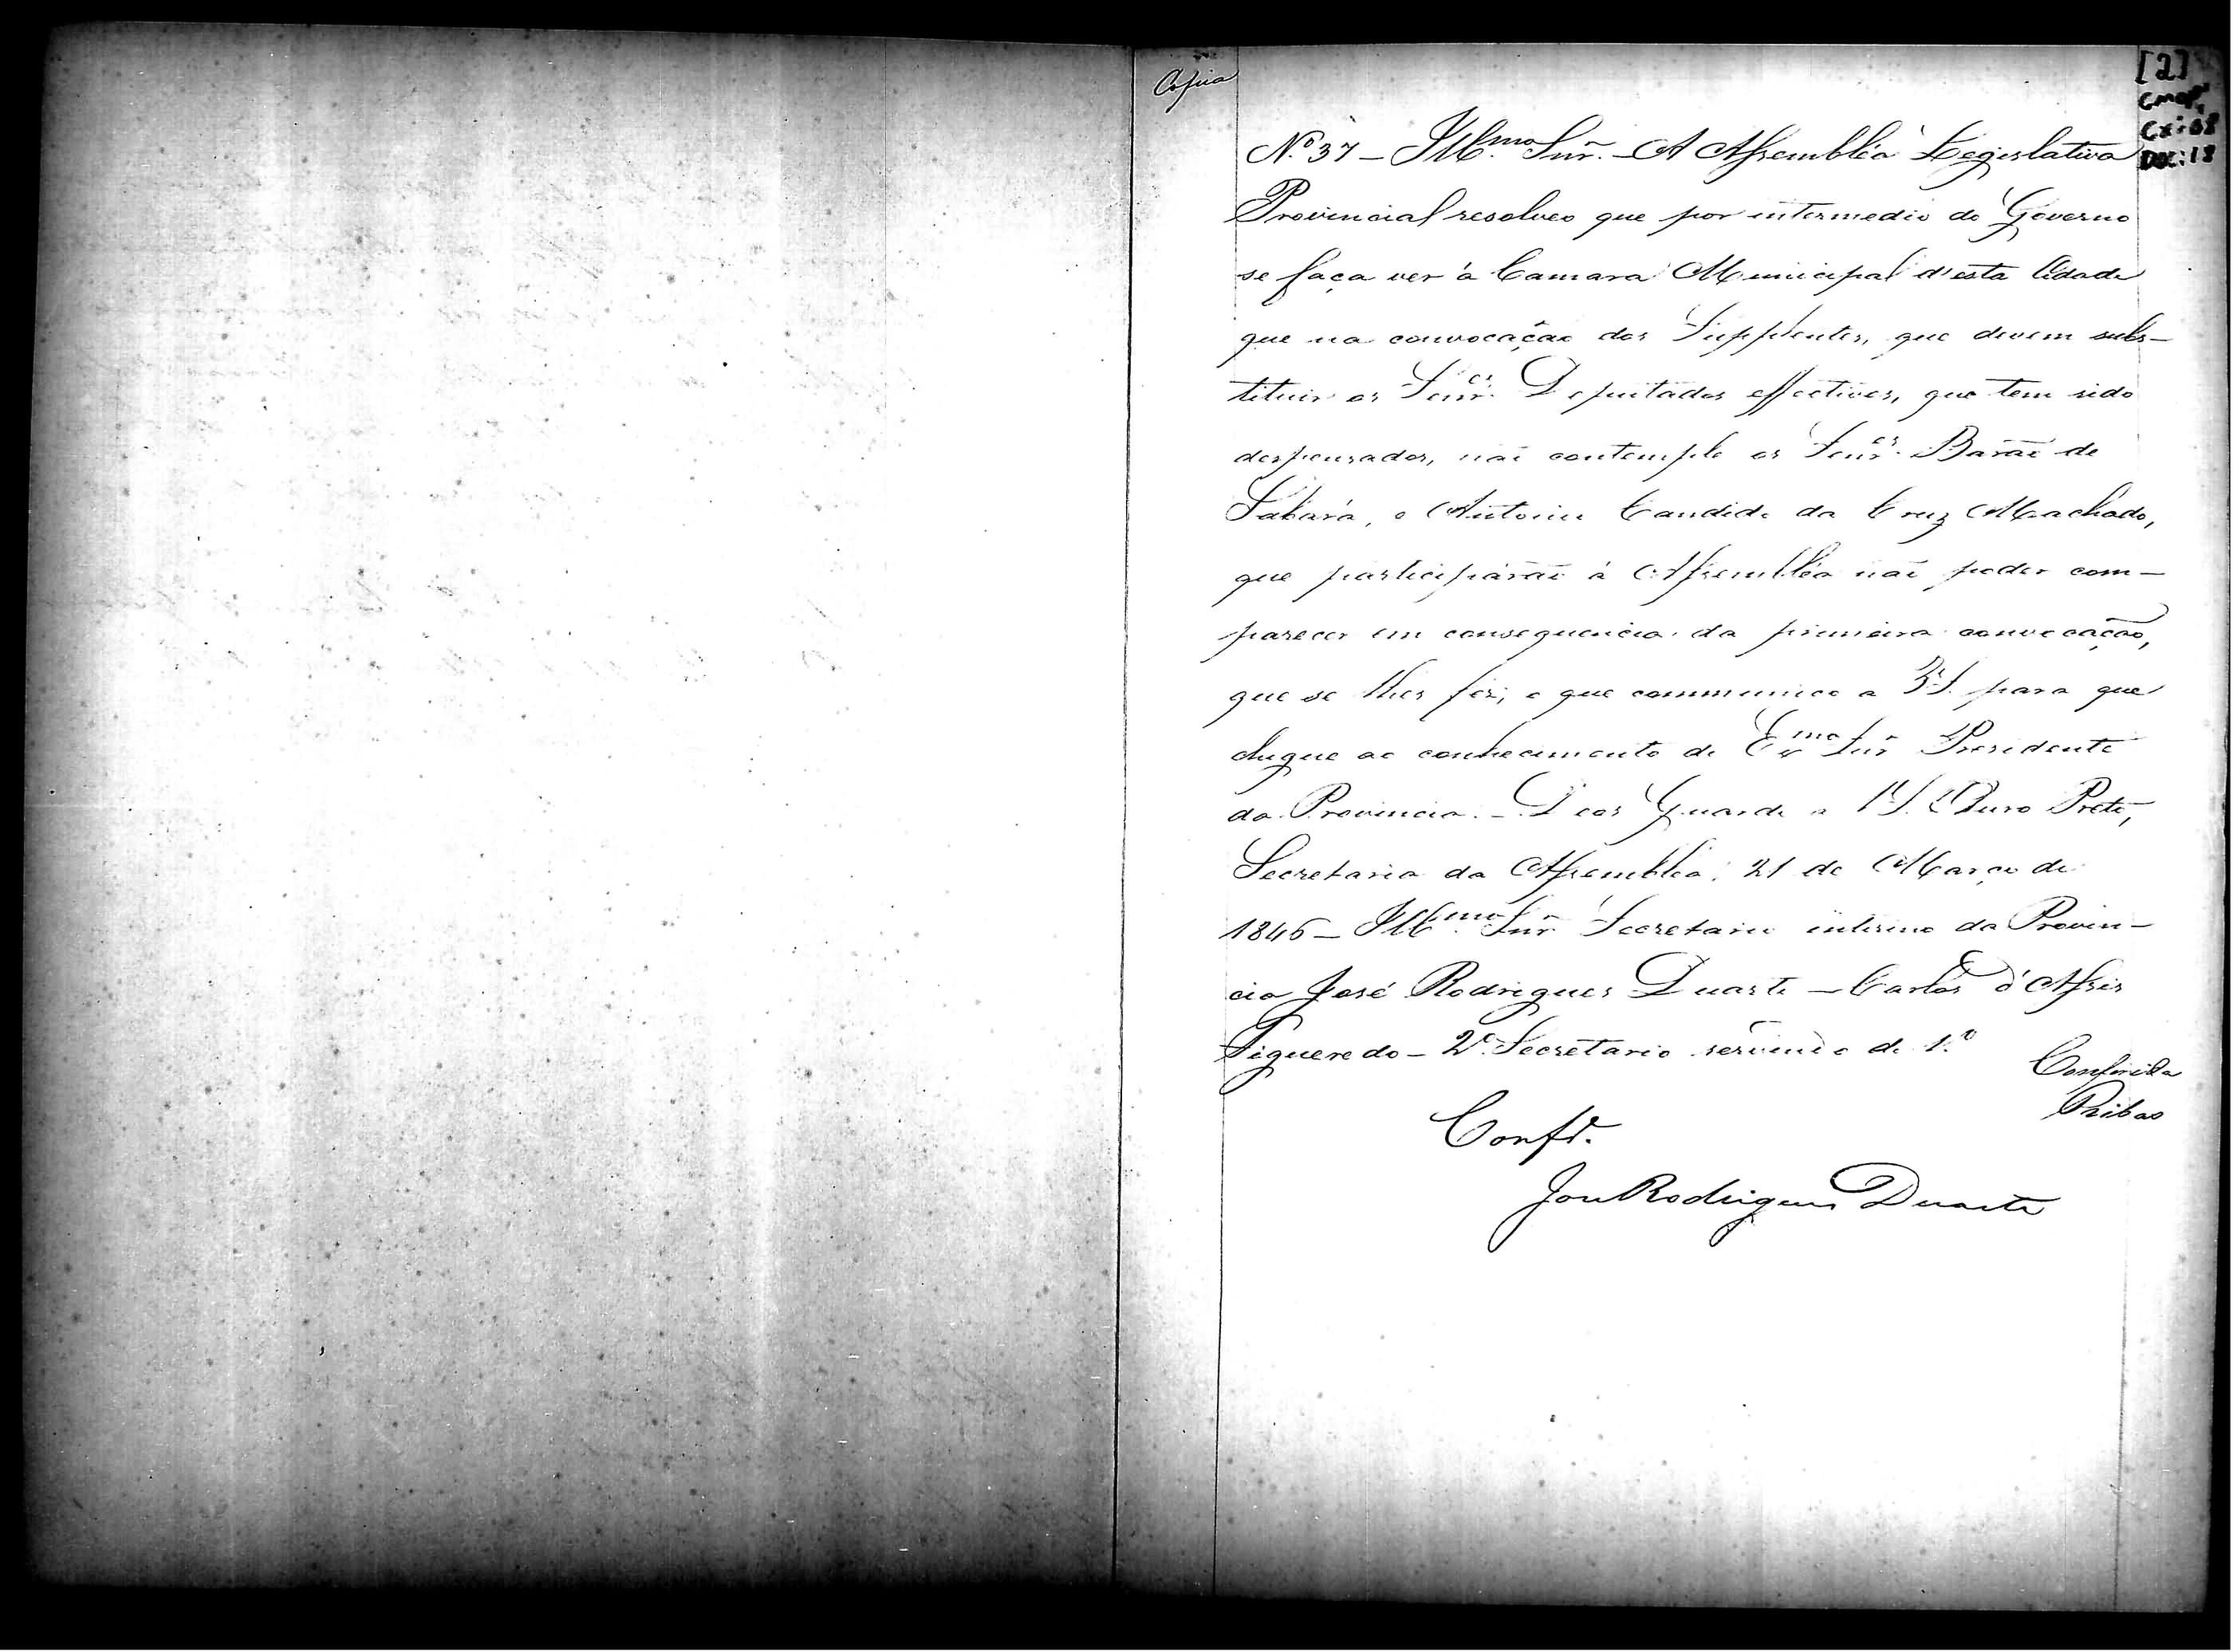 Copia
[2]
CMOP
Cx: 08
DOC: 18
N.º 37 – Ill.mo Snr. – A Assembléa Legislativa
Provincial resolveo que por intermedio do Governo
se faça ver á Camara Municipal d'esta Cidade
que na convocação dos Supplentes, que devem subs–
tituir os Senr.es Deputados effectivos, que tem sido
despensados, não contemple os Senr.es Barão de
Sabará, e Antonio Candido da Cruz Machado,
que participárão á Assembléa não poder com–
parecer em consequencia da primeira convocação,
que se lhes fez; o que communico a V. S. para que
chegue ao conhecimento do Ex.mo Snr Presidente
da Provincia. – Deos Guarde a V. S. Ouro Preto,
Secretaria da Assembléa, 21 de Março de
1846 – Ill.mo Snr Secretario interino da Provin–
cia José Rodrigues Duarte – Carlos d'Assis
Figueredo – 2.º Secretario servindo de 1.º
Conferida
Ribas
Conf.e
José Rodrigues Duarte